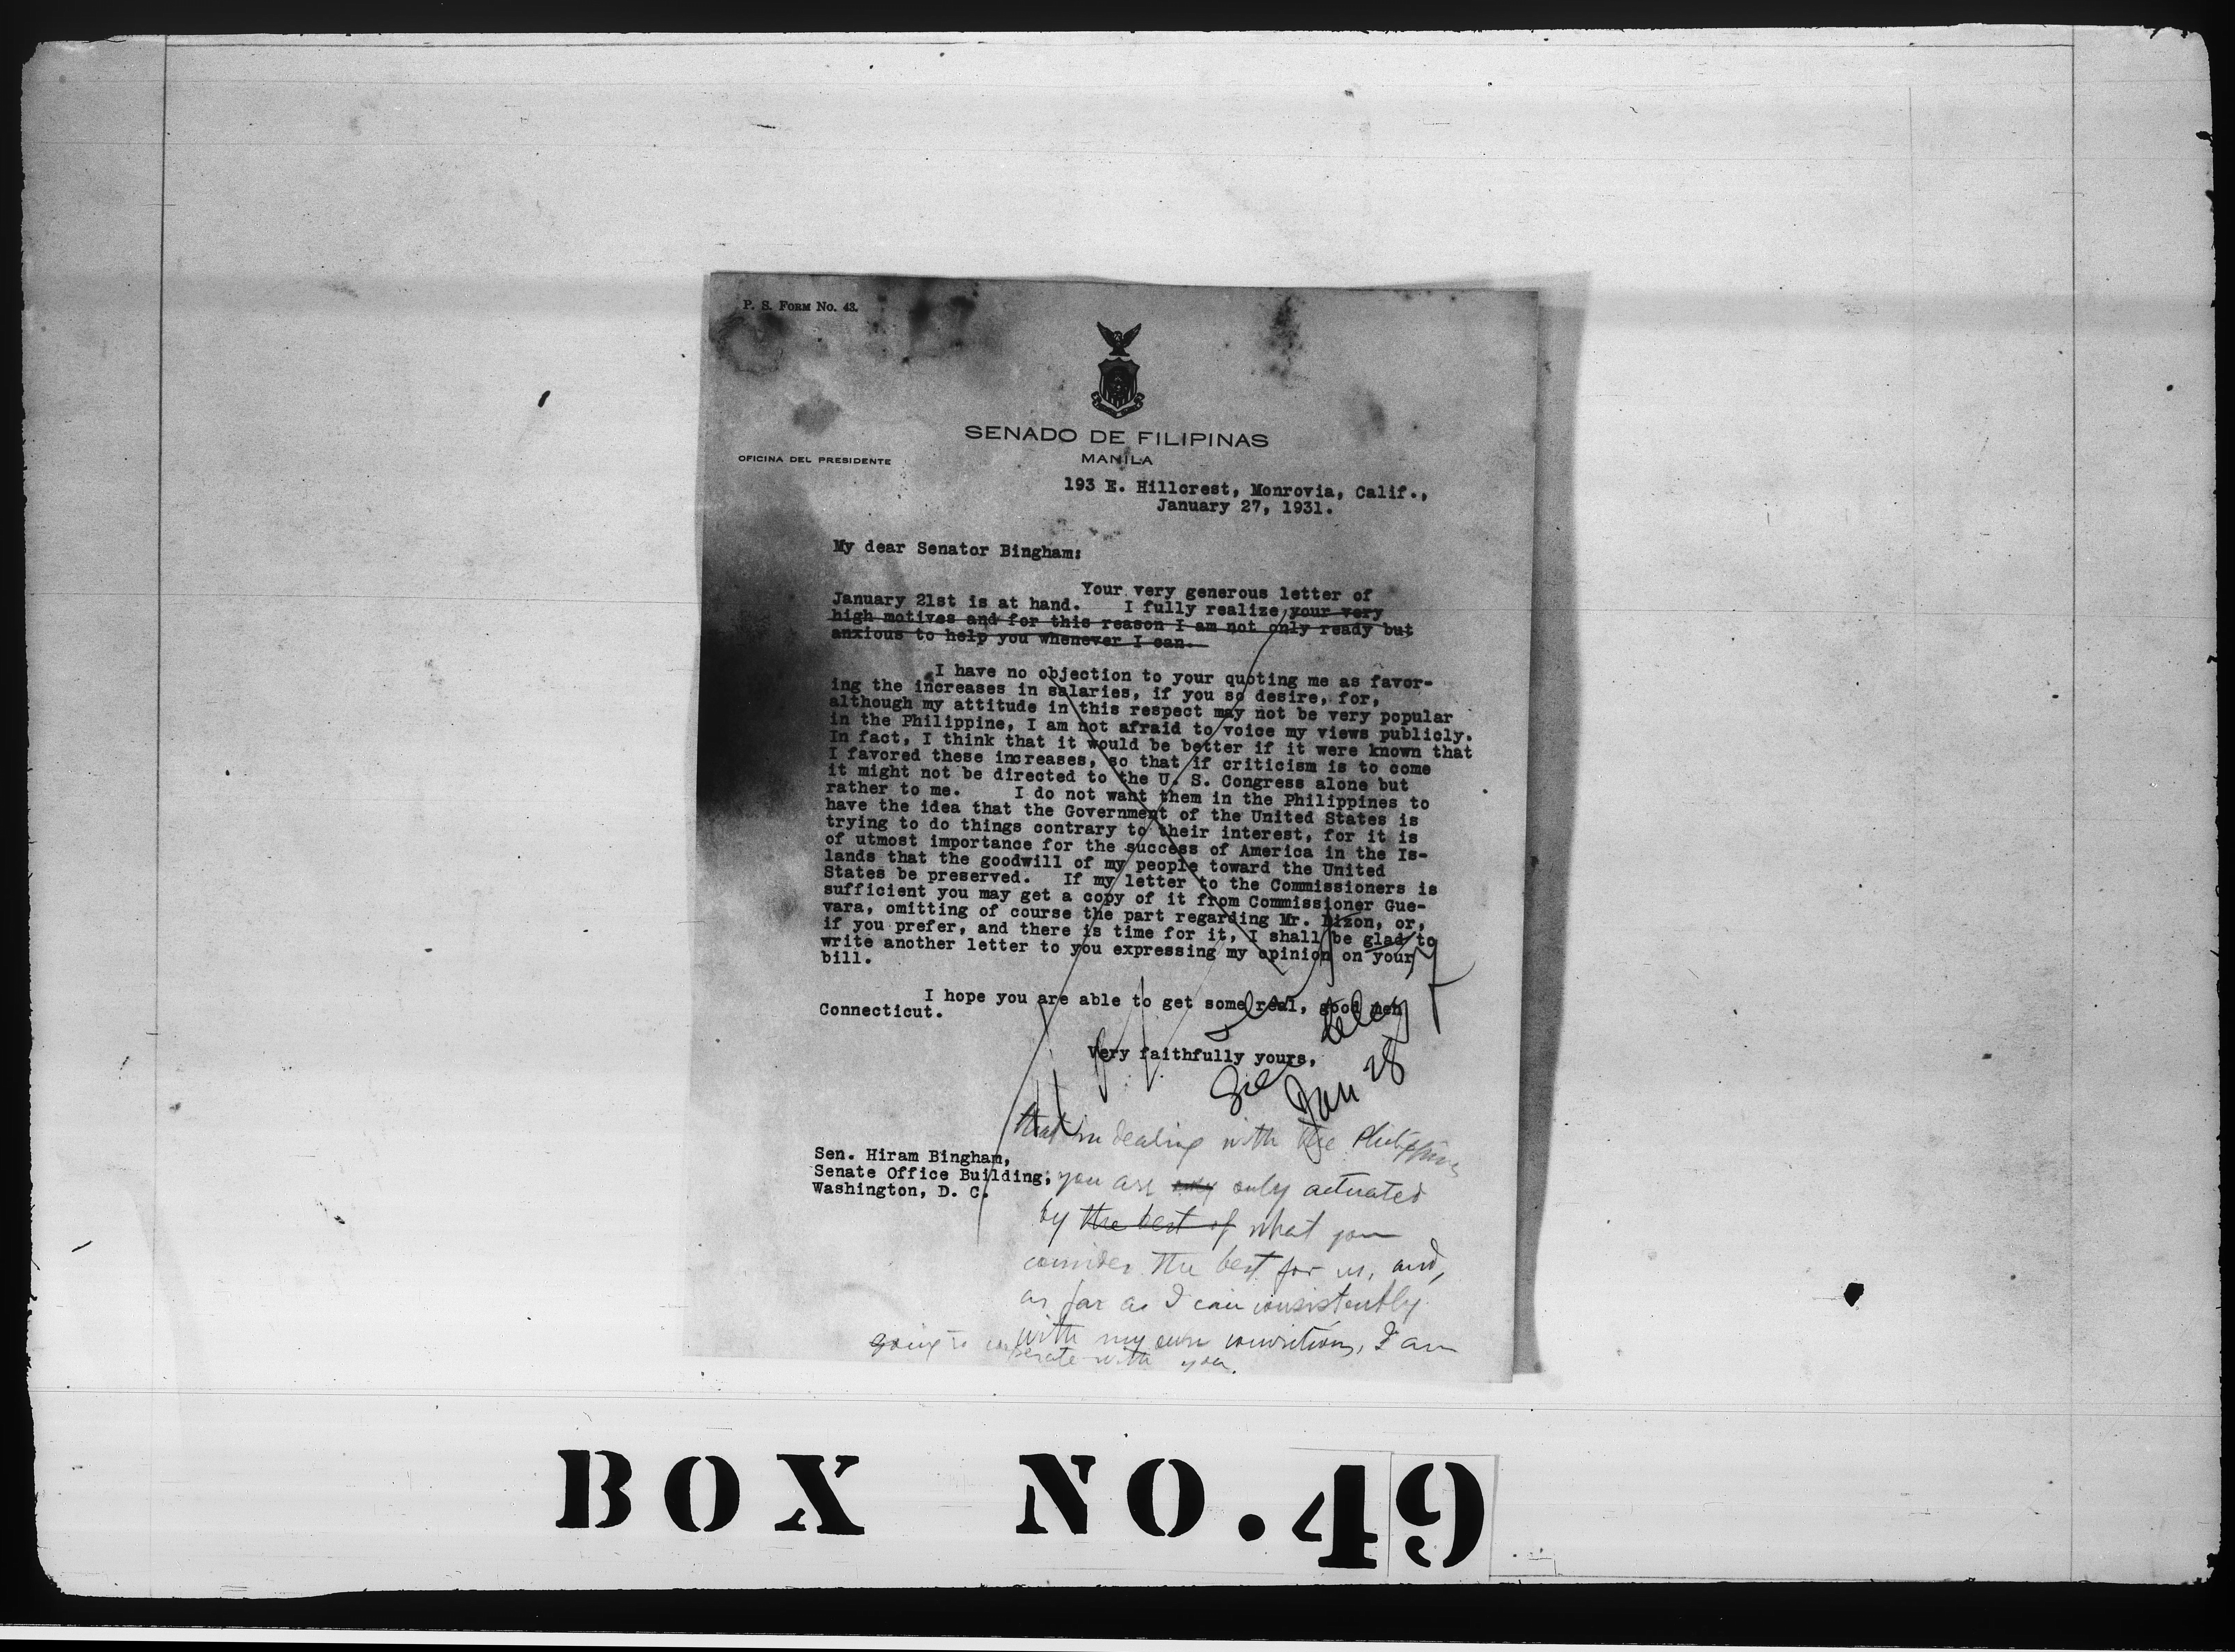 P. S. FORM No. 43.
SENADO DE FILIPINAS
MANILA
OFICINA DEL PRESIDENTE
193 E. Hillcrest, Monrovia, Calif.,
January 27, 1931.
My dear Senator Bingham:
Your very generous letter of
January 21st is at hand. I fully realize your very
high motives and for this reason I am not only ready but
anxious to help you whenever I can.
I have no objection to your quoting me as favor-
ing the increases in salaries, if you so desire, for,
although my attitude in this respect may not be very popular
in the Philippine, I am not afraid to voice my views publicly.
In fact, I think that it would be better if it were known that
I favored these increases, so that if criticism is to come
it might not be directed to the U. S. Congress alone but
rather to me. I do not want them in the Philippines to
have the idea that the Government of the United States is
trying to do things contrary to their interest, for it is
of utmost importance for the success of America in the Is-
lands that the goodwill of my people toward the United
States be preserved. If my letter to the Commissioners is
sufficient you may get a copy of it from Commissioner Gue-
vara, omitting of course the part regarding Mr. Dizon, or,
if you prefer, and there is time for it, I shall be glad to
write another letter to you expressing my opinion on your
bill.
I hope you are able to get some real, good men
Connecticut.
Very faithfully yours,
Jan 28
that in dealing with the Philippines
Sen. Hiram Bingham,
Senate Office Building,
Washington, D. C.
you are only only actuated
by the best of what you
consider the best for us, and,
as far as I can consistently
with my own convictions, I am
going to cooperate with you.
BOX NO. 49